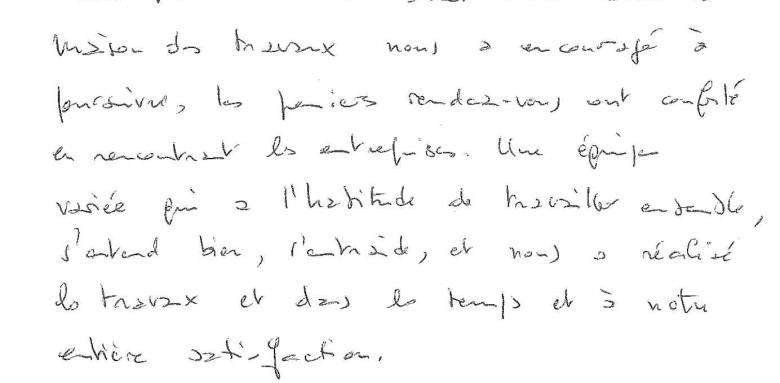 maison des travaux nous a encouragé à
poursuivre, les premiers rendez-vous ont conforté
en rencontrant les entreprises. Une équipe
variée qui a l'habitude de travailler ensemble,
s'entend bien, s'entraide, et nous a réalisé
les travaux et dans les temps et à notre
entière satisfaction.